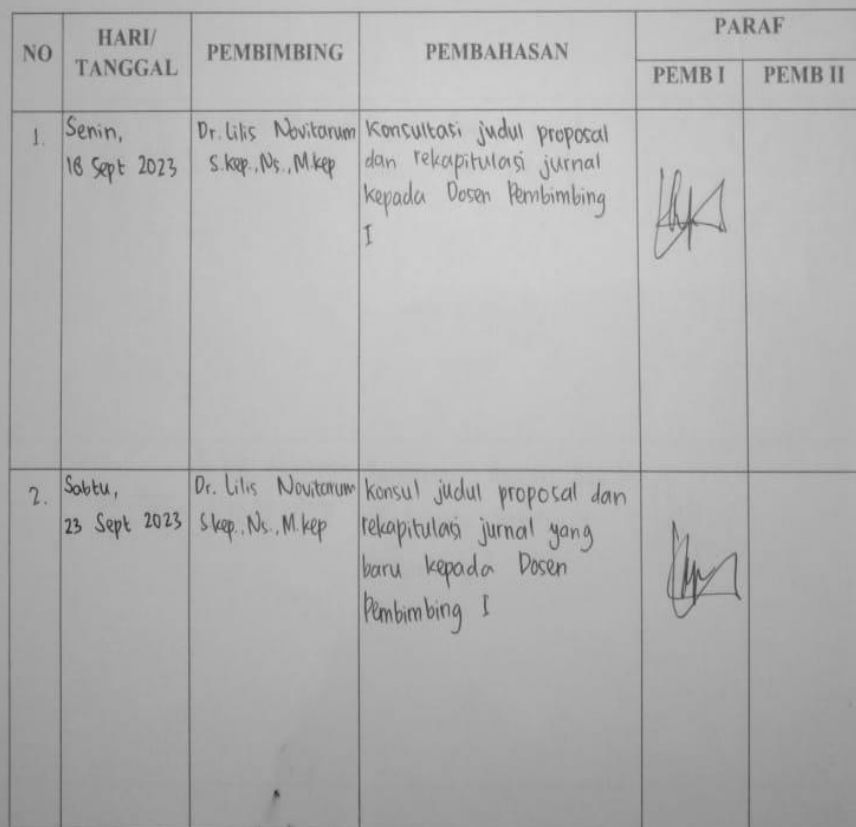 NO
HARI/
TANGGAL
PEMBIMBING
PEMBAHASAN
PARAF
PEMB I
PEMB II
1.
Senin,
18 Sept 2023
Dr. Lilis Novitarum
S.kep., Ns., M.kep
Konsultasi judul proposal
dan rekapitulasi jurnal
kepada Dosen Pembimbing
I
2.
Sabtu,
23 Sept 2023
Dr. Lilis Novitarum
S.kep., Ns., M.kep
Konsul judul proposal dan
rekapitulasi jurnal yang
baru kepada Dosen
Pembimbing I